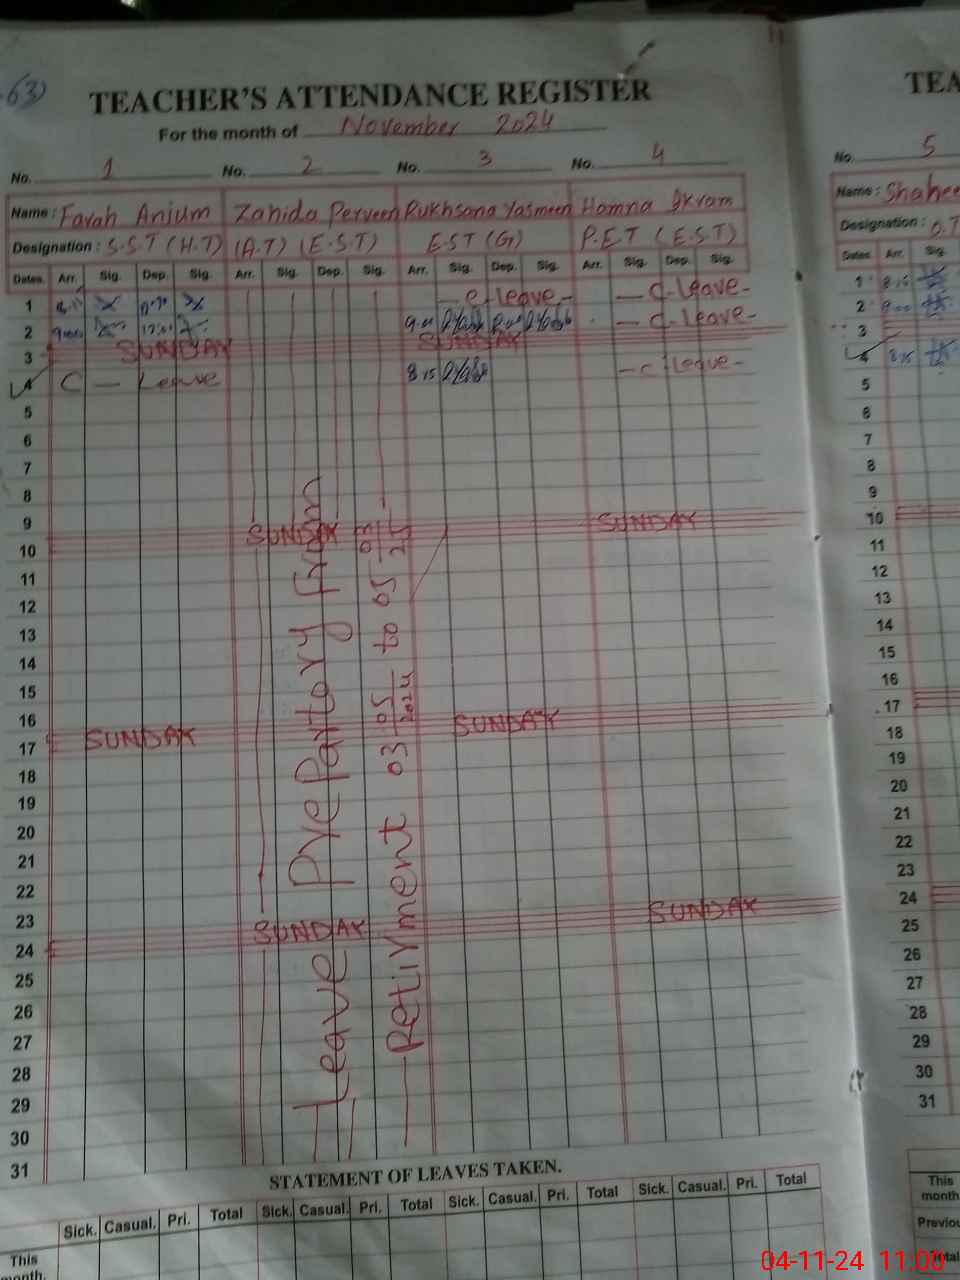 63)
TEACHER'S ATTENDANCE REGISTER
For the month of November 2024
No. 1 No. 2 No. 3 No. 4
Name : Farah Anjum Zahida Perveen Rukhsana Yasmeen Hamna Akram
Designation : S.S.T (H.T) (A.T) (E.S.T) E.S.T (G) P.E.T (E.S.T)
Dates Arr. Sig. Dep. Sig. Arr. Sig. Dep. Sig. Arr. Sig. Dep. Sig. Arr. Sig. Dep. Sig.
1 - C. Leave - - C. Leave -
2 9:00 9:00 - C. Leave -
3 SUNDAY SUNDAY
4 C - Leave 8:15 - C Leave -
5
6
7
8
9
10 SUNDAY SUNDAY
11
12
13
14
15
16
17 SUNDAY SUNDAY
18
19
20
21
22
23
24 SUNDAY SUNDAY
25
26
27
28
29
30
31
Leave Preparatory from
Retirment 03-05-2024 to 05-03-25
STATEMENT OF LEAVES TAKEN.
Sick. Casual. Pri. Total Sick. Casual. Pri. Total Sick. Casual. Pri. Total Sick. Casual. Pri. Total
This
month.
TEA
No. 5
Name : Shahee
Designation :
Dates Arr. Sig.
1 8:15
2 9:00
3
4 8:15
5
6
7
8
9
10
11
12
13
14
15
16
17
18
19
20
21
22
23
24
25
26
27
28
29
30
31
This
month
Previou
Total
04-11-24 11:00